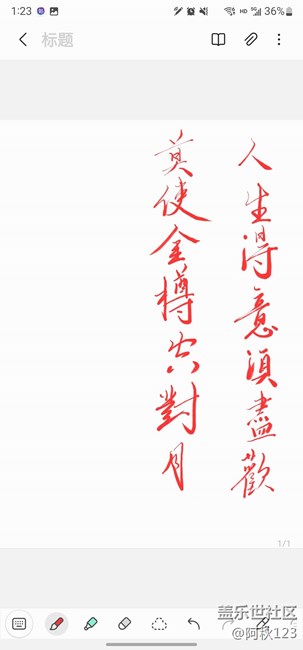 1:23
36%
标题
人生得意須盡歡
莫使金樽空對月
1/1
盖乐世社区
@阿秋123